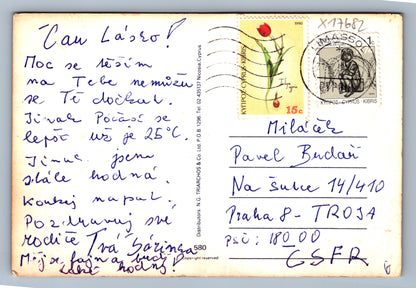 Čau Lásko!
Moc se těším
na Tebe nemůžu
se Tě dočkat.
Jinak Počasí se
lepší už je 25°C.
Jinak jsem
stále hodná.
Koukej napsat.
Pozdravuj své
rodiče Tvá
Měj se fajn a buď
také hodný!
Distributors: N.G. TRIARCHOS & Co. Ltd. P.O.B. 1296 Tel. 02 435137 Nicosia, Cyprus
580
Copyright reserved
X17682
ΚΥΠΡΟΣ-CYPRUS-KIBRIS
1990
15c
LIMASSOL
ΚΥΠΡΟΣ CYPRUS KIBRIS
Miláček
Pavel
Na Šutce 14/410
Praha 8 - TROJA
PSČ: 180 00
ČSFR